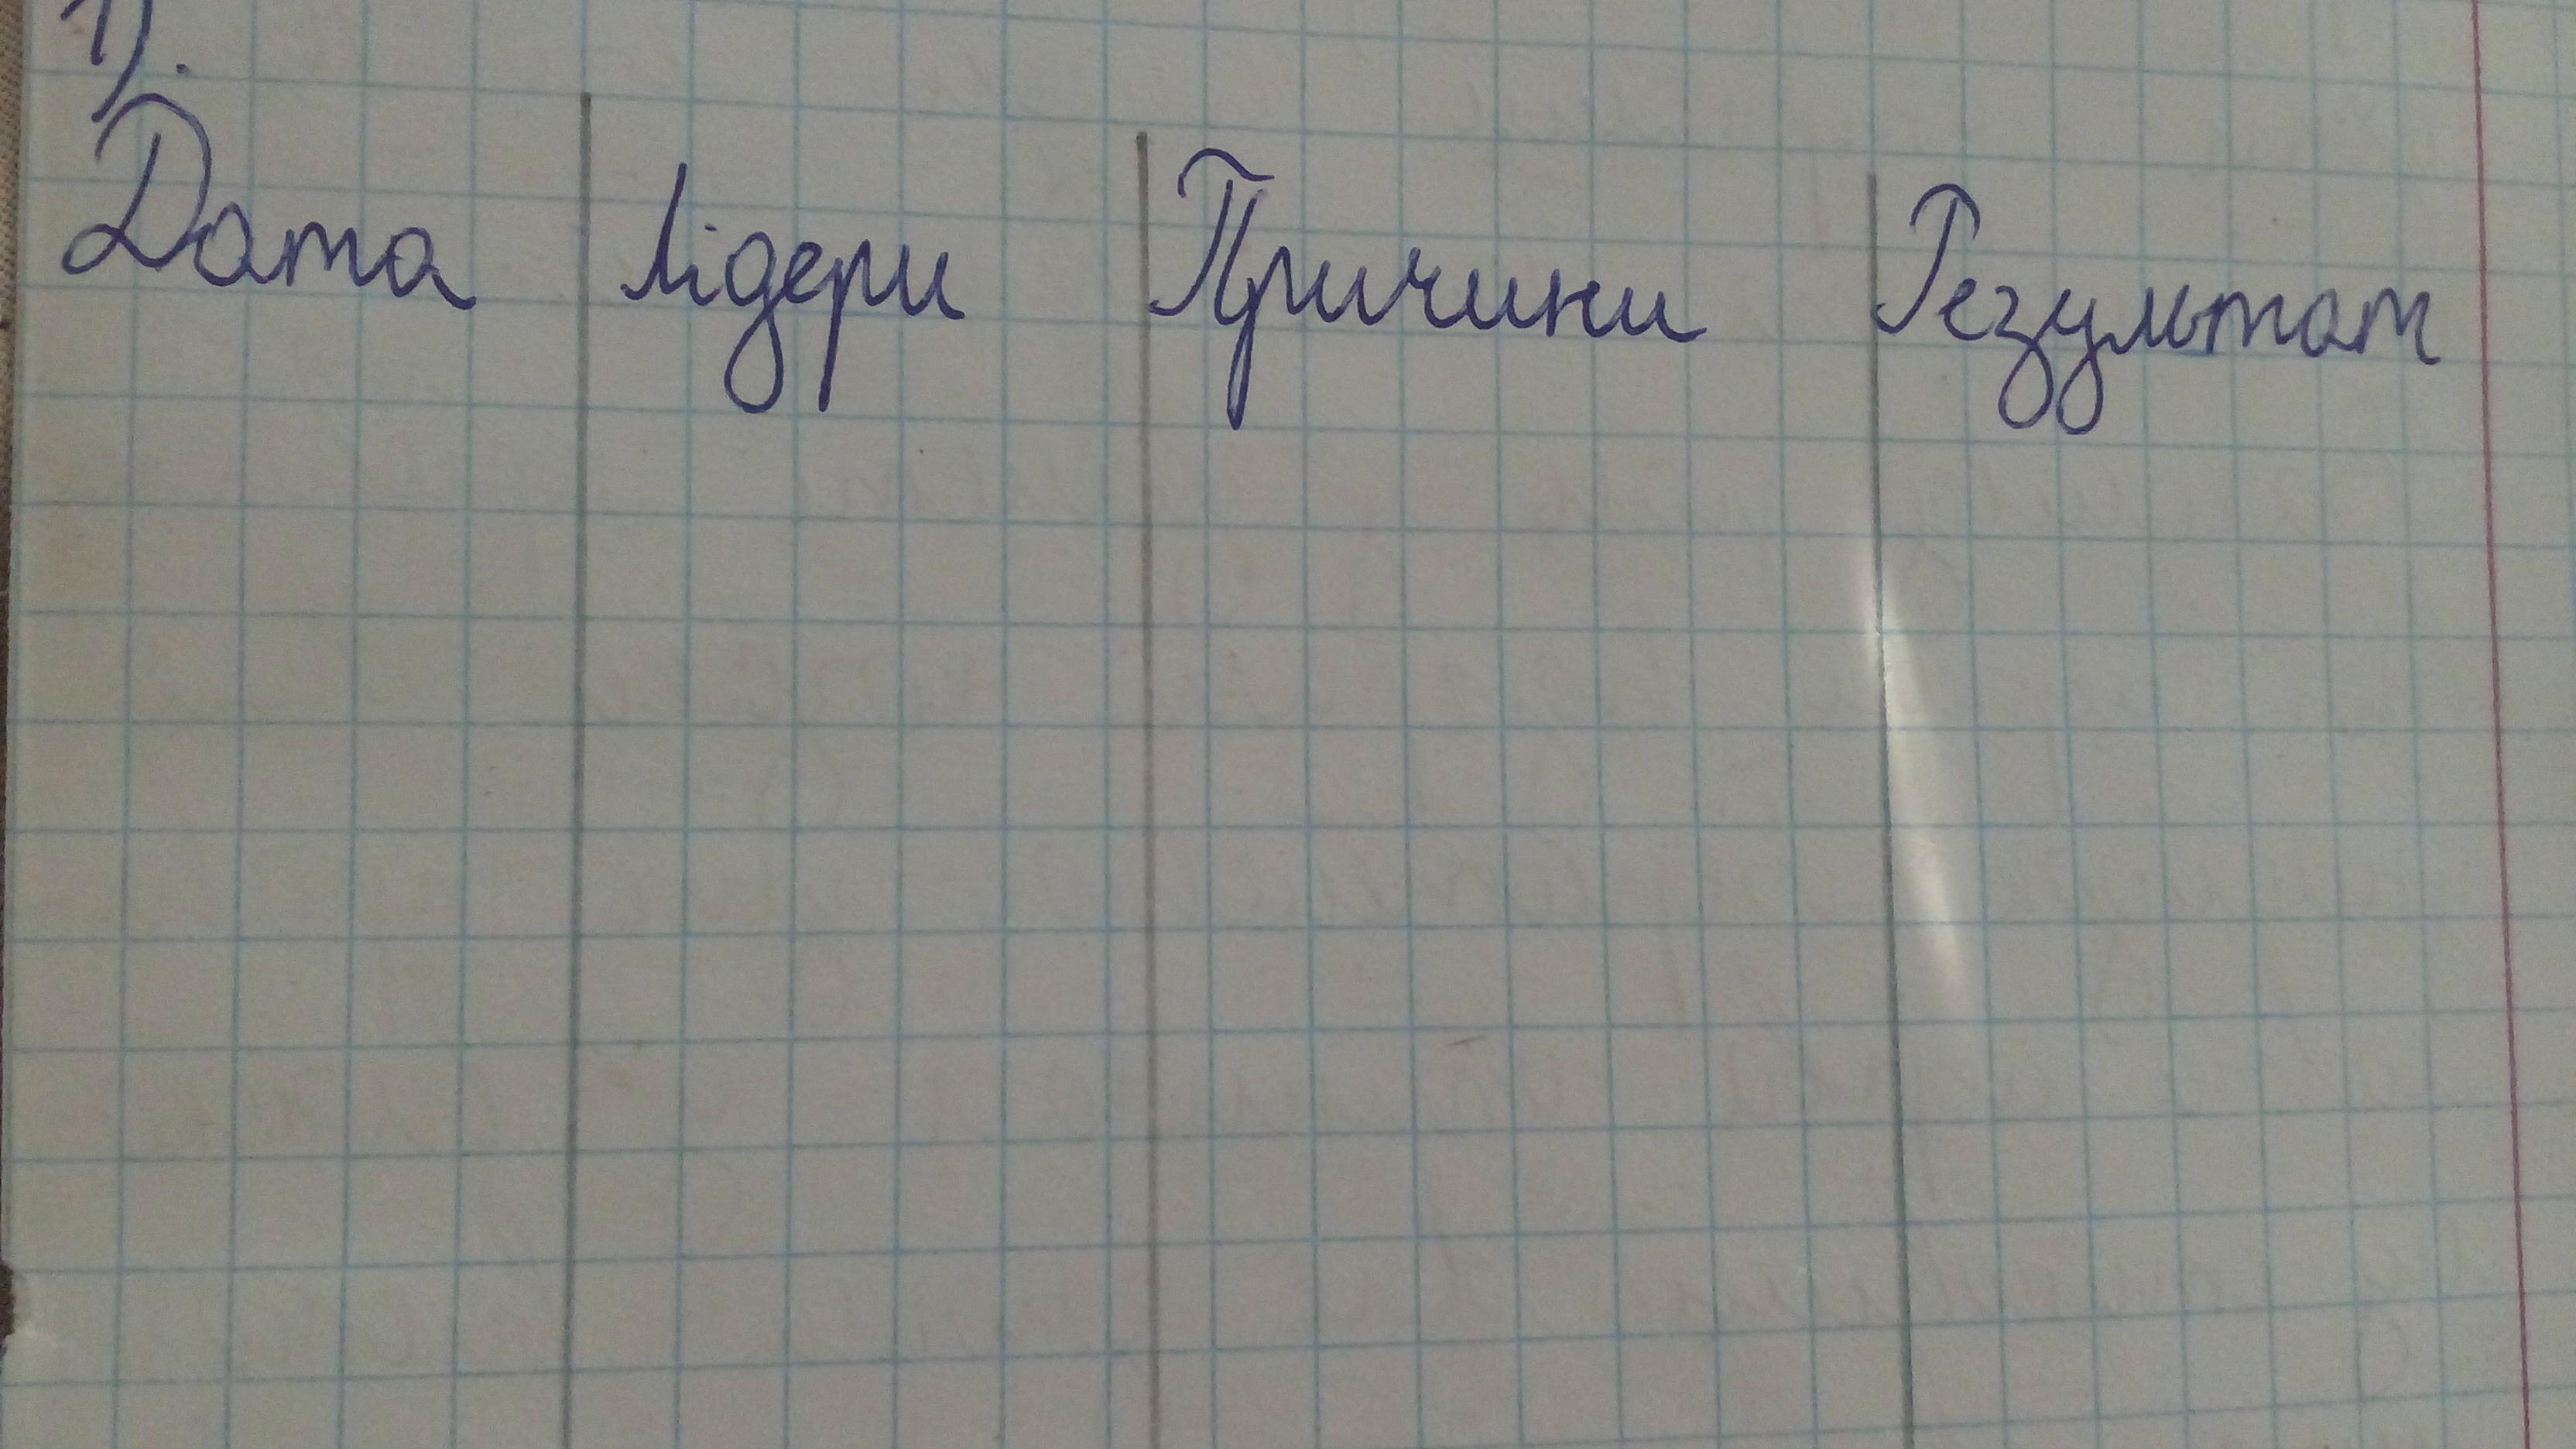 1).
Дата лідери Причини Результат